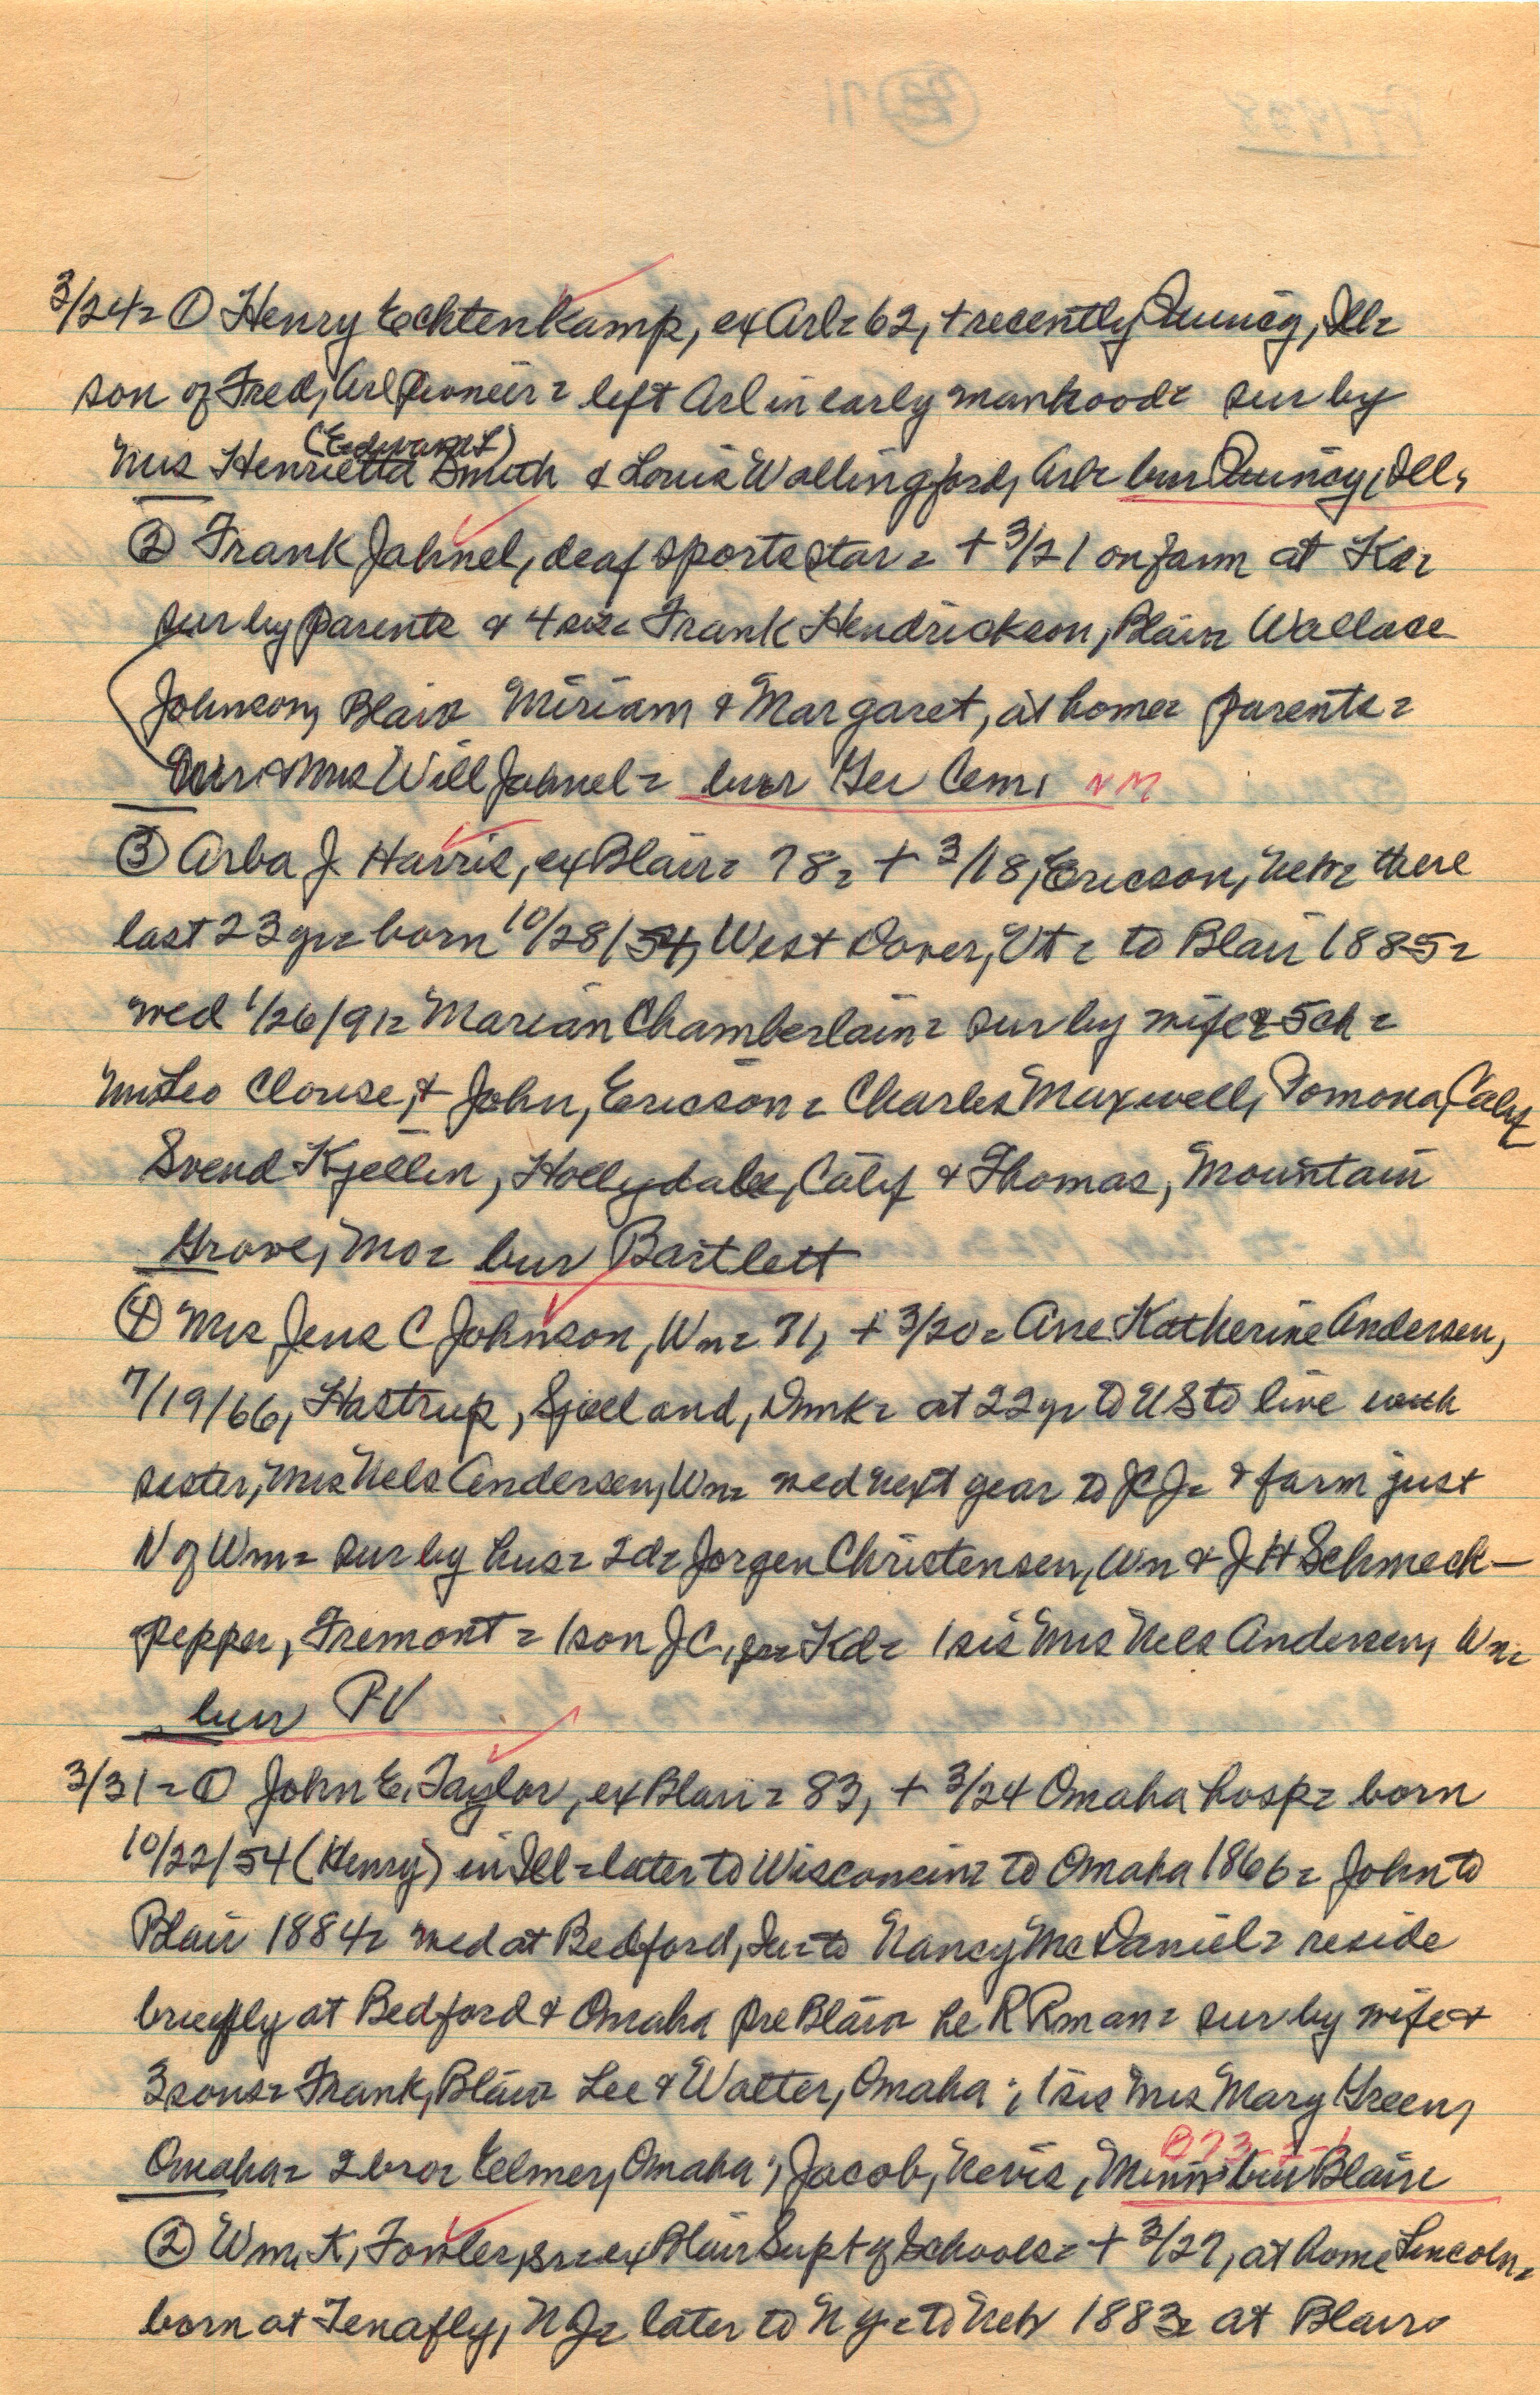 3/24= ① Henry Echtenkamp, ex Arl= 62, + recently Quincy, Ill=
son of Fred, Arl pioneer= left Arl in early manhood= sur by
(Edward L)
Mrs Henrietta Smith & Louis Wallingford, Arl= bur Quincy, Ill.
② Frank Jahnel, deaf sports star= + 3/21 on farm at Kd=
sur by parents & 4 sis= Frank Hendrickson, Blair= Wallace
Johnson, Blair= Miriam & Margaret, at home= parents=
Mr & Mrs Will Jahnel= bur Ger Cem. NM
③ Arba J. Harris, ex Blair= 78= + 3/18, Ericson, Neb= there
last 23 yr= born 10/28/54, West Dover, Vt= to Blair 1885=
wed 1/26/91= Marian Chamberlain= sur by wife & 5 ch=
Mrs Leo Clouse, & John, Ericson= Charles Maxwell, Pomona, Calif
Svend Kjellin, Hollydale, Calif & Thomas, Mountain
Grove, Mo= bur Bartlett
④ Mrs Jens C Johnson, Wn= 71, + 3/20= Ane Katherine Andersen,
7/19/66, Hastrup, Sjelland, Dmk= at 22 yr to US to live with
sister, Mrs Nels Andersen, Wn= wed next year to JCJ= & farm just
N of Wn= sur by hus= 2d= Jorgen Christensen, Wn & J H Schmeck-
pepper, Fremont= 1 son J C, jr= Kd= 1 sis Mrs Nels Andersen, Wn=
bur PV
3/31= ① John E. Taylor, ex Blair= 83, + 3/24 Omaha hosp= born
10/22/54 (Henry) in Ill= later to Wisconsin= to Omaha 1866= John to
Blair 1884= wed at Bedford, Ia= to Nancy McDaniel= reside
briefly at Bedford & Omaha pre Blair= he RRman= sur by wife &
3 sons= Frank, Blair= Lee & Walter, Omaha; 1 sis Mrs Mary Green,
Omaha= 2 bro= Elmer, Omaha; Jacob, Nevis, Minn= bur Blair
② Wm. K. Fowler, sr= ex Blair Supt of Schools= + 3/27, at home Lincoln=
born at Tenafly, NJ= later to NY= to Neb 1883= at Blair=